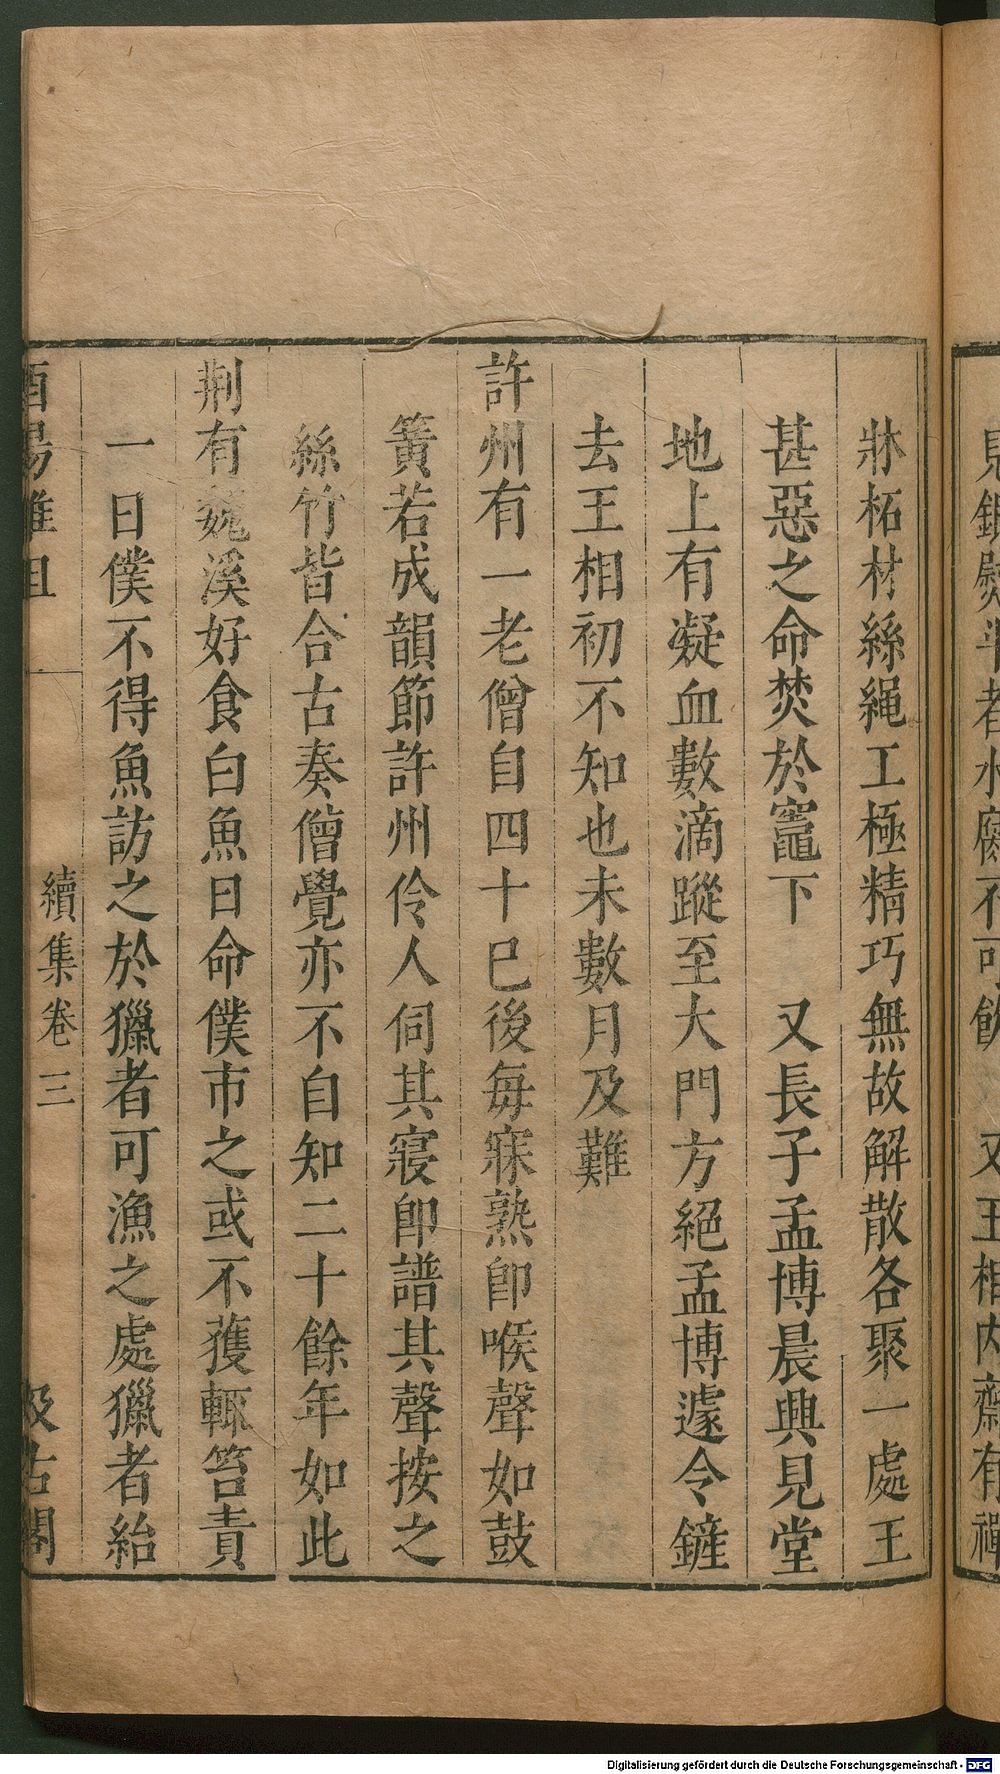 牀柘材絲繩工極精巧無故解散各聚一處王
甚惡之命焚於竈下　又長子孟博晨興見堂
地上有凝血數滴蹤至大門方絕孟博遽令鏟
去王相初不知也未數月及難
許州有一老僧自四十巳後每寐熟卽喉聲如鼓
簧若成韻節許州伶人伺其寢卽譜其聲按之
絲竹皆合古奏僧覺亦不自知二十餘年如此
荆有魏溪好食白魚日命僕市之或不獲輒笞責
一日僕不得魚訪之於獵者可漁之處獵者紿
酉陽雜俎
續集卷三
汲古閣
Digitalisierung gefördert durch die Deutsche Forschungsgemeinschaft - DFG